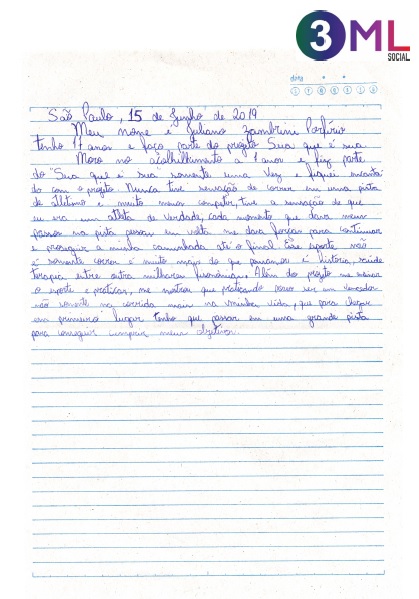 3ML
SOCIAL
data
São Paulo, 15 de Junho de 2019
Meu nome é Juliano Zambrini Porfírio
tenho 17 anos e faço parte do projeto Sua que é sua
Moro no acolhimento a 1 anos e fiz parte
do "Sua que é sua" somente uma vez e fiquei
do com o projeto. Nunca tive sensação de correr em uma pista
de atletismo e muito menos competir, tive a sensação de que
eu era um atleta de verdade, cada momento que dava meus
passos na pista pessoas em volta me dava forças para continuar
e prosseguir a minha caminhada até o final. Esse esporte não
é somente correr é muito mais do que pensamos é história, saúde
terapia entre outra melhoras Além do projeto me
o esporte e praticar, me mostrou que praticando posso ser um vencedor
não somente na corrida mais na minha vida, que para chegar
em primeiro lugar tenho que passar em uma grande pista
para conseguir cumprir meus objetivos.